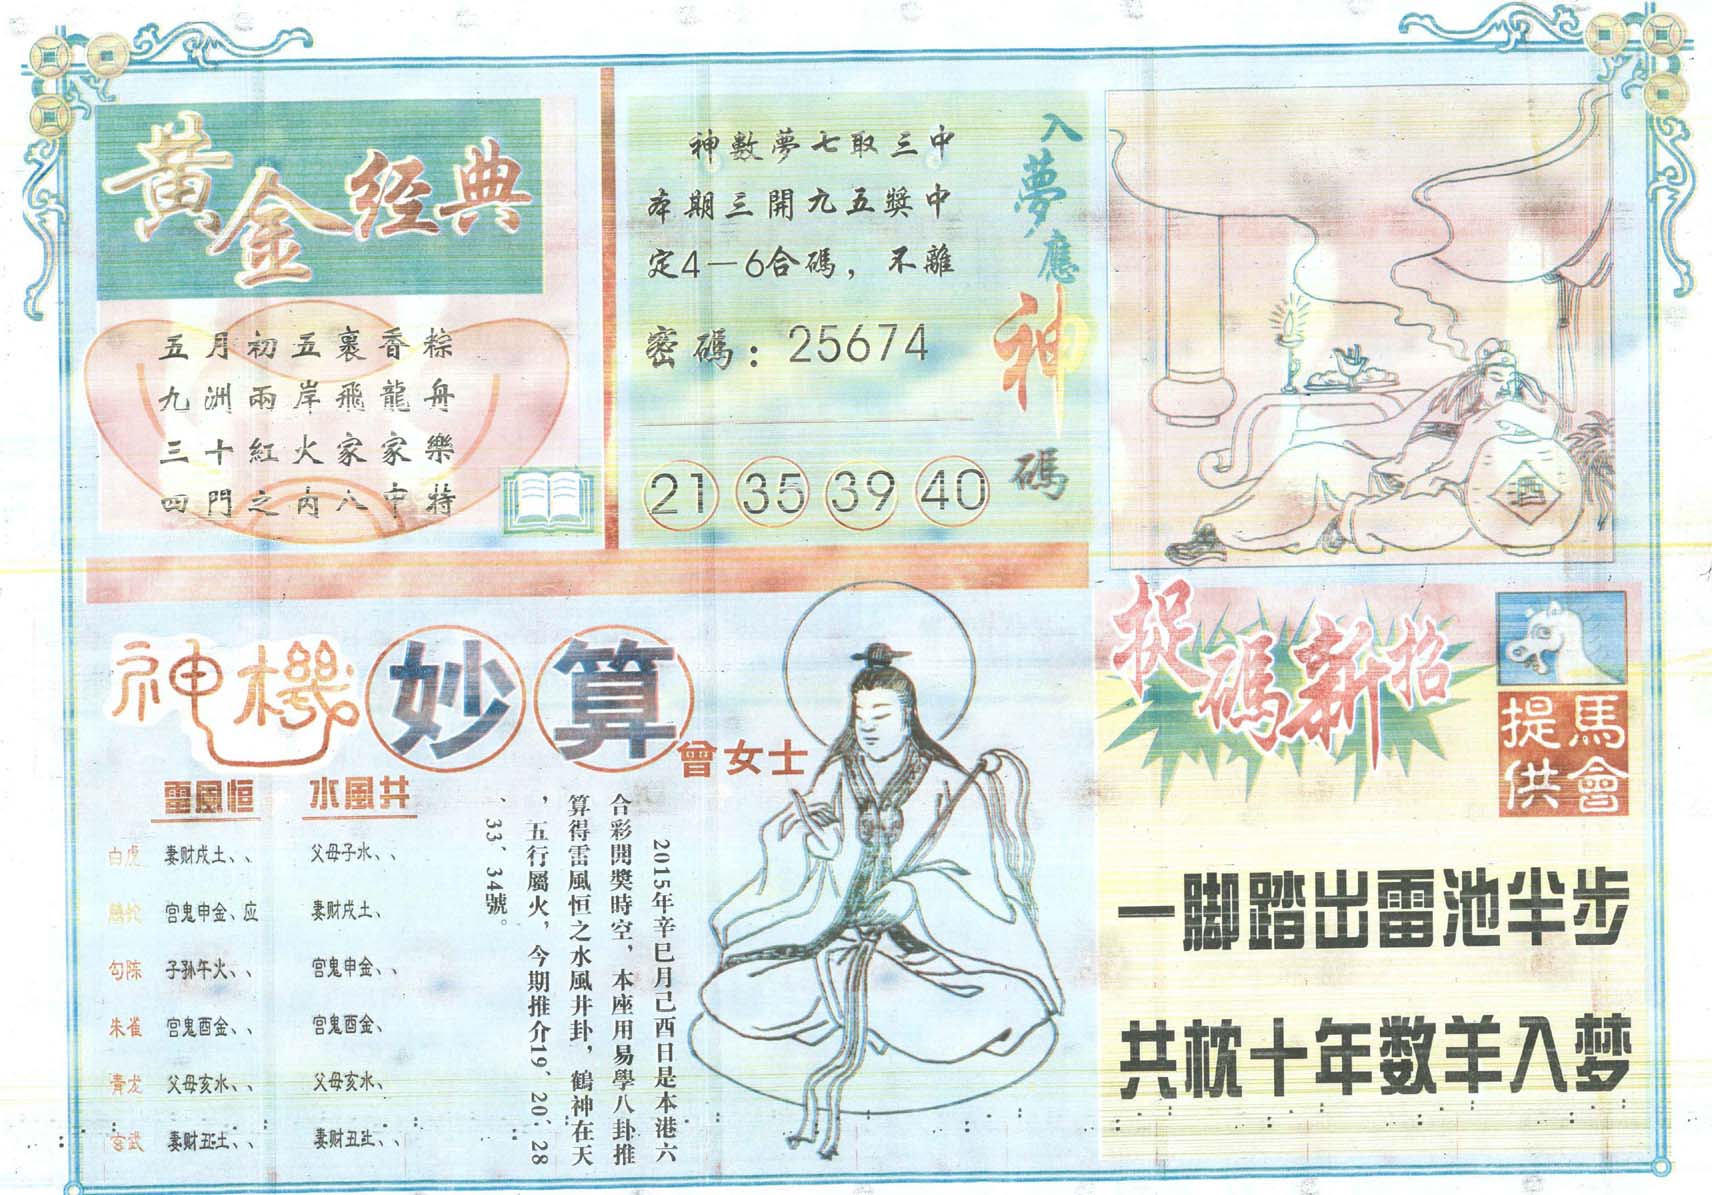 黃金经典
五月初五裹香粽
九洲兩岸飛龍舟
三十紅火家家樂
四門之内八中特
神數夢七取三中
本期三開九五獎中
定4—6合碼，不離
密碼：25674
21 35 39 40
入夢應神碼
酒
神機妙算
曾女士
雷風恒 水風井
白虎 妻财戌土、、 父母子水、、
螣蛇 官鬼申金、应 妻财戌土、
勾陈 子孙午火、、 官鬼申金、、
朱雀 官鬼酉金、、 官鬼酉金、
青龙 父母亥水、、 父母亥水、
玄武 妻财丑土、、 妻财丑土、、
2015年辛巳月己酉日是本港六
合彩開獎時空，本座用易學八卦推
算得雷風恒之水風井卦，鶴神在天
，五行屬火，今期推介19、20、28
、33、34號。
捉碼新招
馬會提供
一脚踏出雷池半步
共枕十年数羊入梦